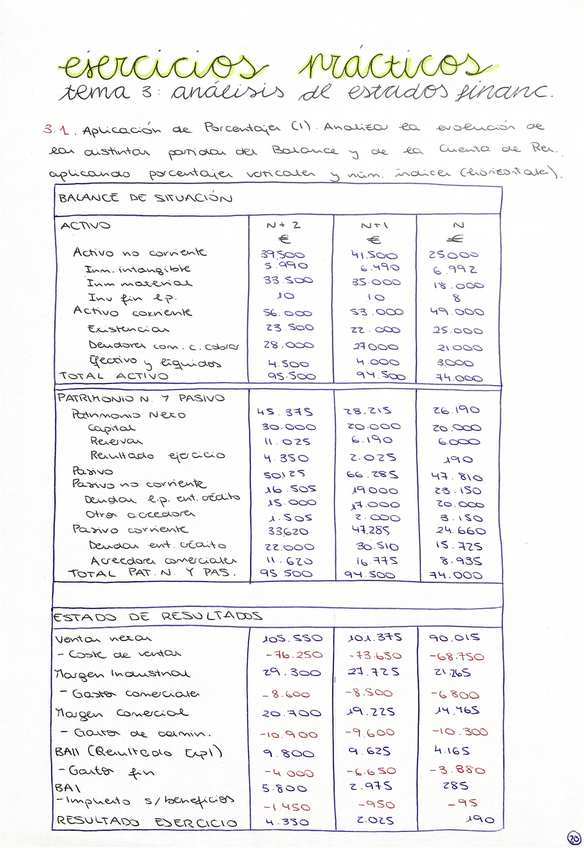 ejercicios prácticos
tema 3: análisis de estados financ.
3.1. Aplicación de Porcentajes (1). Analiza la evolución de
las distintas partidas del Balance y de la Cuenta de Res.
aplicando porcentajes verticales y núm. índices (horizontales).
BALANCE DE SITUACIÓN
ACTIVO N+2 N+1 N
€ € €
Activo no corriente 39.500 41.500 25.000
Inm. intangible 5.990 6.490 6.992
Inm material 33.500 35.000 18.000
Inv fin l.p. 10 10 8
Activo corriente 56.000 53.000 49.000
Existencias 23.500 22.000 25.000
Deudores com. c. cobrar 28.000 27000 21000
Efectivo y líquidos 4.500 4.000 3000
TOTAL ACTIVO 95.500 94.500 74.000
PATRIMONIO N. Y PASIVO
Patrimonio Neto 45.375 28.215 26.190
Capital 30.000 20.000 20.000
Reservas 11.025 6.190 6000
Resultado ejercicio 4.350 2.025 190
Pasivo 50125 66.285 47.810
Pasivo no corriente 16.505 19000 23.150
Deudas l.p. ent. crédito 15.000 17.000 20.000
Otros acreedores 1.505 2.000 3.150
Pasivo corriente 33620 47.285 24.660
Deudas ent. crédito 22.000 30.510 15.725
Acreedores comerciales 11.620 16.775 8.935
TOTAL PAT. N. Y PAS. 95 500 94.500 74.000
ESTADO DE RESULTADOS
Ventas netas 105.550 101.375 90.015
- Coste de ventas -76.250 -73.650 -68.750
Margen Industrial 29.300 27.725 21.265
- Gastos comerciales -8.600 -8.500 -6.800
Margen comercial 20.700 19.225 14.465
- Gastos de admin. -10.900 -9.600 -10.300
BAII (Resultado Expl) 9.800 9.625 4.165
- Gastos fin -4.000 -6.650 -3.880
BAI 5.800 2.975 285
- Impuesto s/beneficios -1450 -950 -95
RESULTADO EJERCICIO 4.350 2.025 190
20